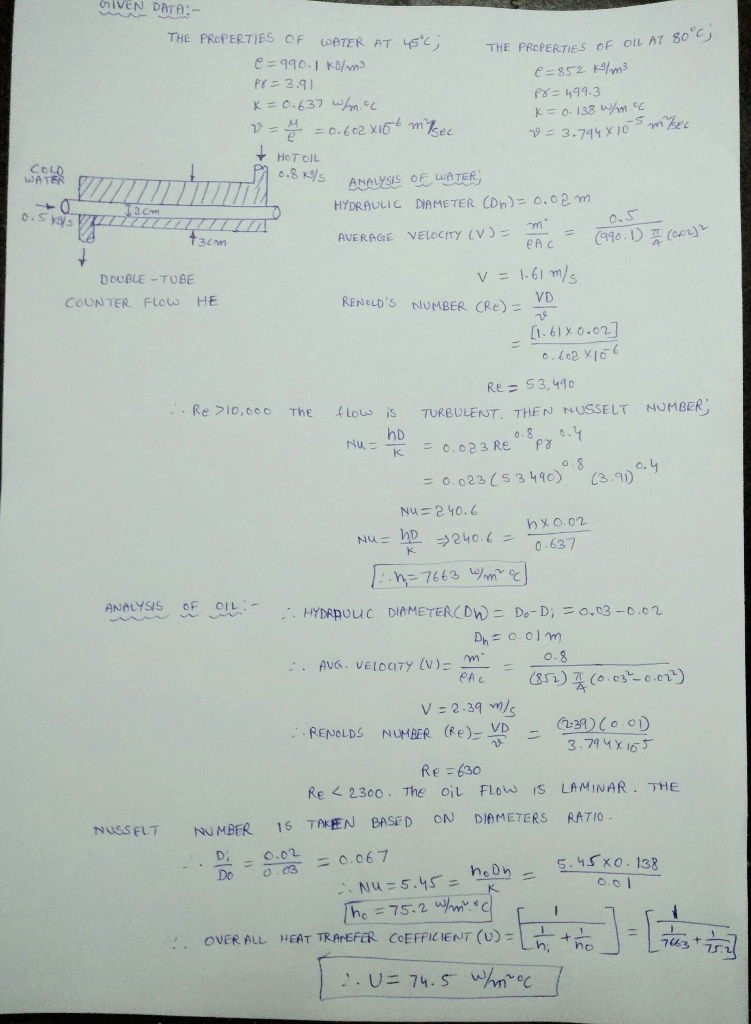 GIVEN DATA:-
THE PROPERTIES OF WATER AT 45°C;
e = 990.1 KG/m³
Pr = 3.91
K = 0.637 W/m.°C
ν = M/e = 0.602 X 10⁻⁶ m²/sec
THE PROPERTIES OF OIL AT 80°C;
e = 852 KG/m³
Pr = 499.3
K = 0.138 W/m.°C
ν = 3.794 X 10⁻⁵ m²/sec
HOT OIL
0.8 KG/S
COLD
WATER
0.5 KG/S
2cm
3cm
DOUBLE-TUBE
COUNTER FLOW HE
ANALYSIS OF WATER;
HYDRAULIC DIAMETER (Dh) = 0.02 m
AVERAGE VELOCITY (V) = m·/eAc = 0.5/(990.1) π/4 (0.02)²
V = 1.61 m/s
RENOLD'S NUMBER (Re) = VD/ν
= [1.61 X 0.02]/0.602 X 10⁻⁶
Re = 53,490
∴ Re >10,000 THE flow is TURBULENT. THEN NUSSELT NUMBER;
Nu = hD/K = 0.023 Re^0.8 Pr^0.4
= 0.023 (53490)^0.8 (3.91)^0.4
Nu = 240.6
Nu = hD/K ⇒ 240.6 = h X 0.02/0.637
∴ hᵢ = 7663 W/m²°C
ANALYSIS OF OIL:- ∴ HYDRAULIC DIAMETER (Dh) = Do-Di = 0.03-0.02
Dh = 0.01 m
∴ AVG. VELOCITY (V) = m·/eAc = 0.8/(852) π/4 (0.03²-0.02²)
V = 2.39 m/s
∴ RENOLDS NUMBER (Re) = VD/ν = (2.39)(0.01)/3.794 X 10⁻⁵
Re = 630
Re < 2300. The OIL FLOW IS LAMINAR. THE
NUSSELT NUMBER IS TAKEN BASED ON DIAMETERS RATIO.
∴ Di/Do = 0.02/0.03 = 0.067
∴ Nu = 5.45 = hoDh/K = 5.45 X 0.138/0.01
ho = 75.2 W/m².°C
∴ OVERALL HEAT TRANSFER COEFFICIENT (U) = [1/(1/hi + 1/ho)] = [1/(1/7663 + 1/75.2)]
∴ U = 74.5 W/m²°C